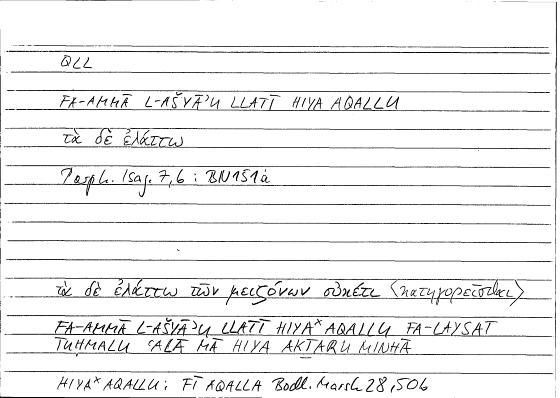 QLL
FA-AMMĀ L-AŠYĀʾU LLATĪ HIYA AQALLU
τὰ δὲ ἐλάττω
Porph. Isag. 7,6 : BN151a
τὰ δὲ ἐλάττω τῶν μειζόνων οὐκέτι <κατηγορεῖσθαι>
FA-AMMĀ L-AŠYĀʾU LLATĪ HIYAˣ AQALLU FA-LAYSAT
TUḤMALU ʿALĀ MĀ HIYA AKṮARU MINHĀ
HIYAˣ AQALLU : FĪ AQALLA Bodl. Marsh 28,50b